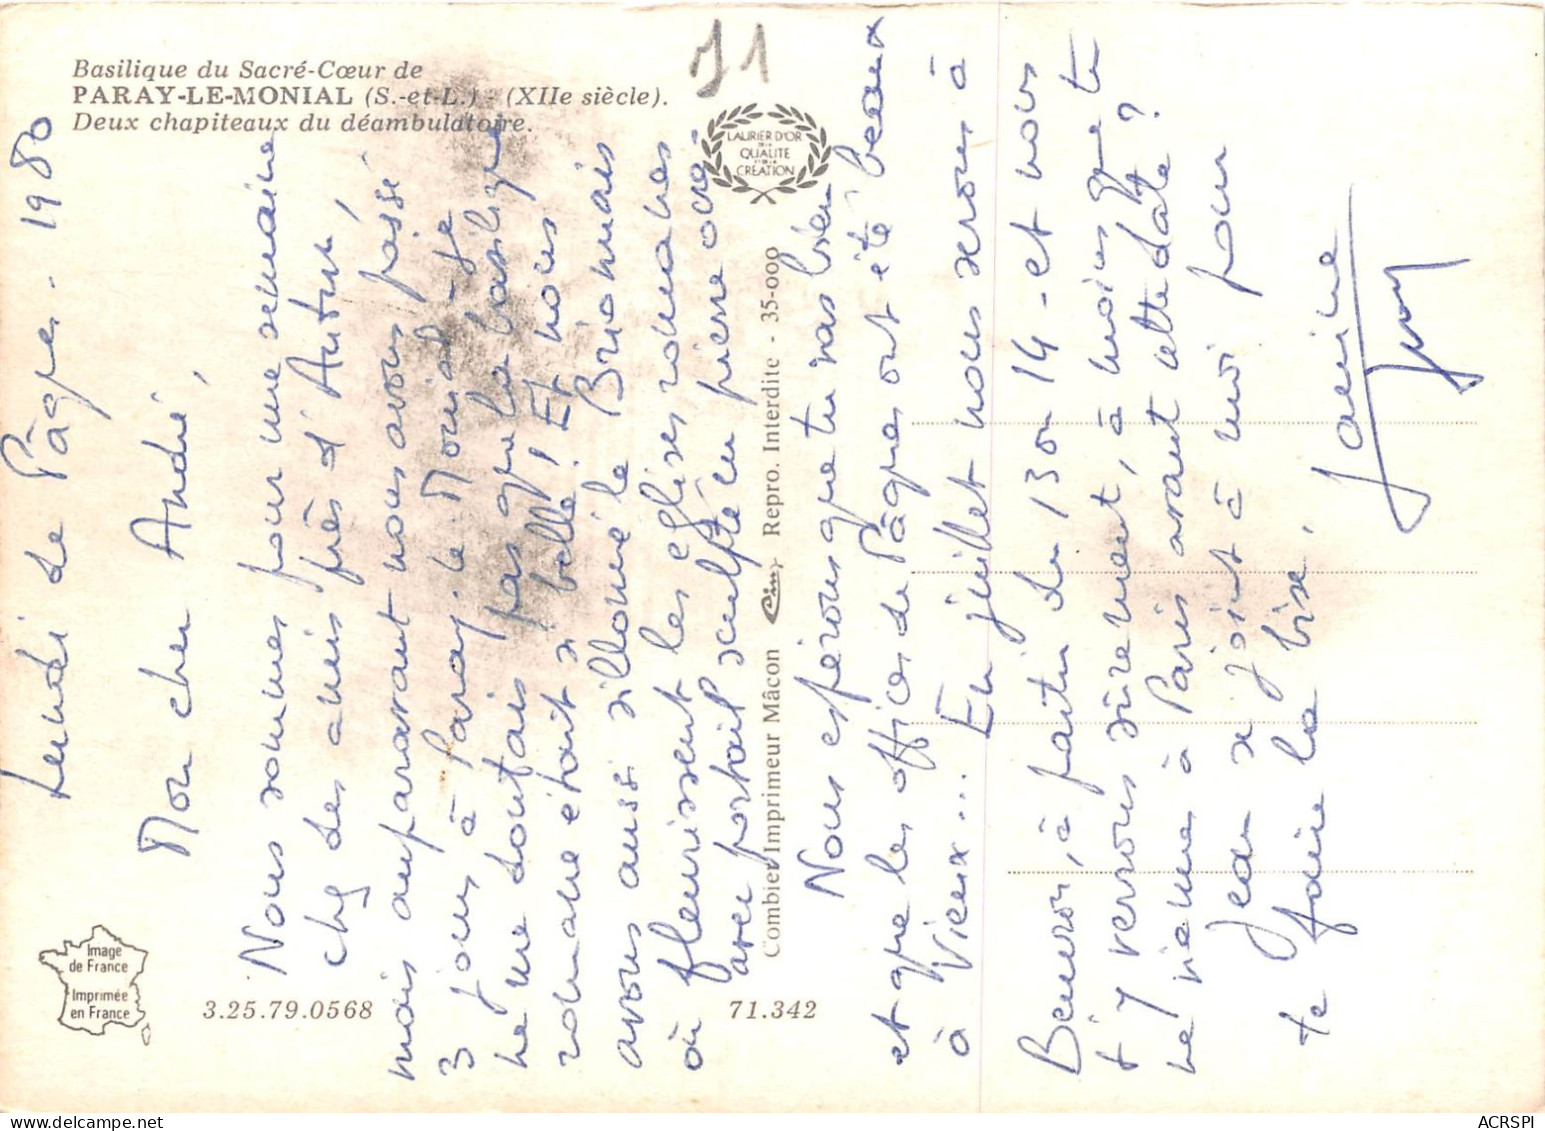 Basilique du Sacré-Cœur de
PARAY-LE-MONIAL (S.-et-L.) - (XIIe siècle).
Deux chapiteaux du déambulatoire.
71
LAURIER D'OR
DE LA
QUALITÉ
ET DE LA
CRÉATION
Lundi de Pâques. 1980
Mon cher André,
Nous sommes pour une semaine
chez des amis près d'Autun,
mais auparavant nous avons passé
3 jours à Paray-le-Monial - je
ne me doutais pas que la basilique
romane était si belle! Et nous
avons aussi sillonné le Brionnais
où fleurissent les églises romanes
avec portail sculpté en pierre ocre
Nous espérons que tu vas bien
et que les offices de Pâques ont été beaux
à Vieux... En juillet nous serons à
Beauvoir, à partir du 13 ou 14 - et nous
t'y verrons sûrement, à moins que tu
ne viennes à Paris avant cette date?
Jean se joint à moi pour
te faire la bise.
Janine
Jean
Combier Imprimeur Mâcon Cim Repro. Interdite - 35-000
Image
de France
Imprimée
en France
3.25.79.0568
71.342
ACRSPI